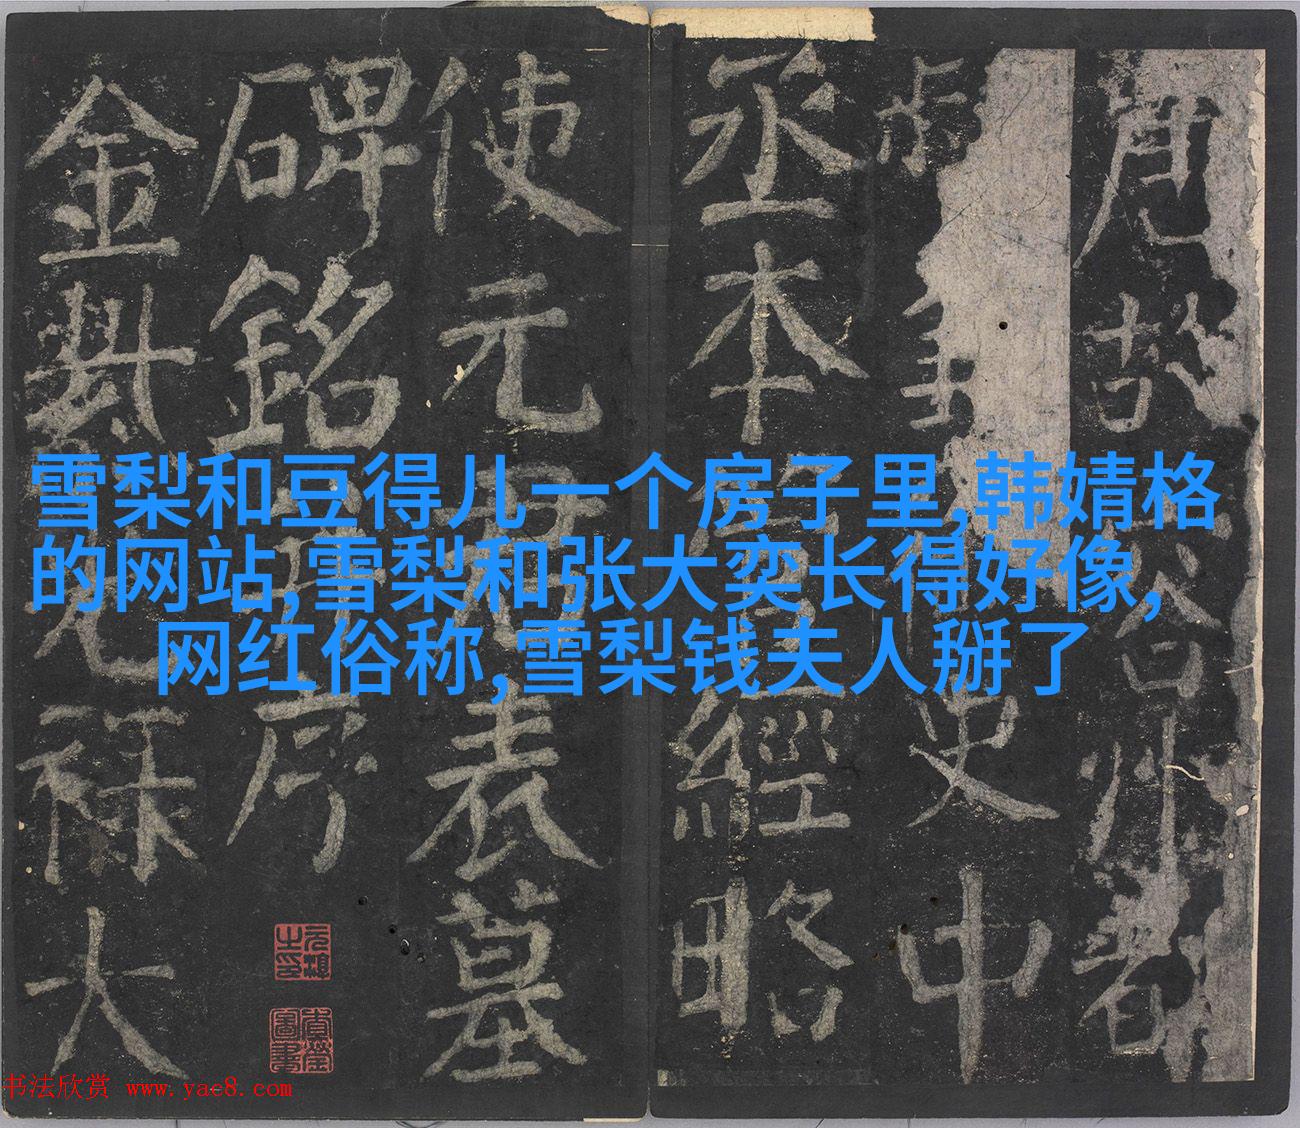 唐故容州都
史中
丞本管經略
使元君表墓
碑銘并序
金紫光祿大
雪梨和豆得儿一个房子里,韩婧格
的网站,雪梨和张大奕长得好像,
网红俗称,雪梨钱夫人掰了
书法欣赏 www.yac8.com